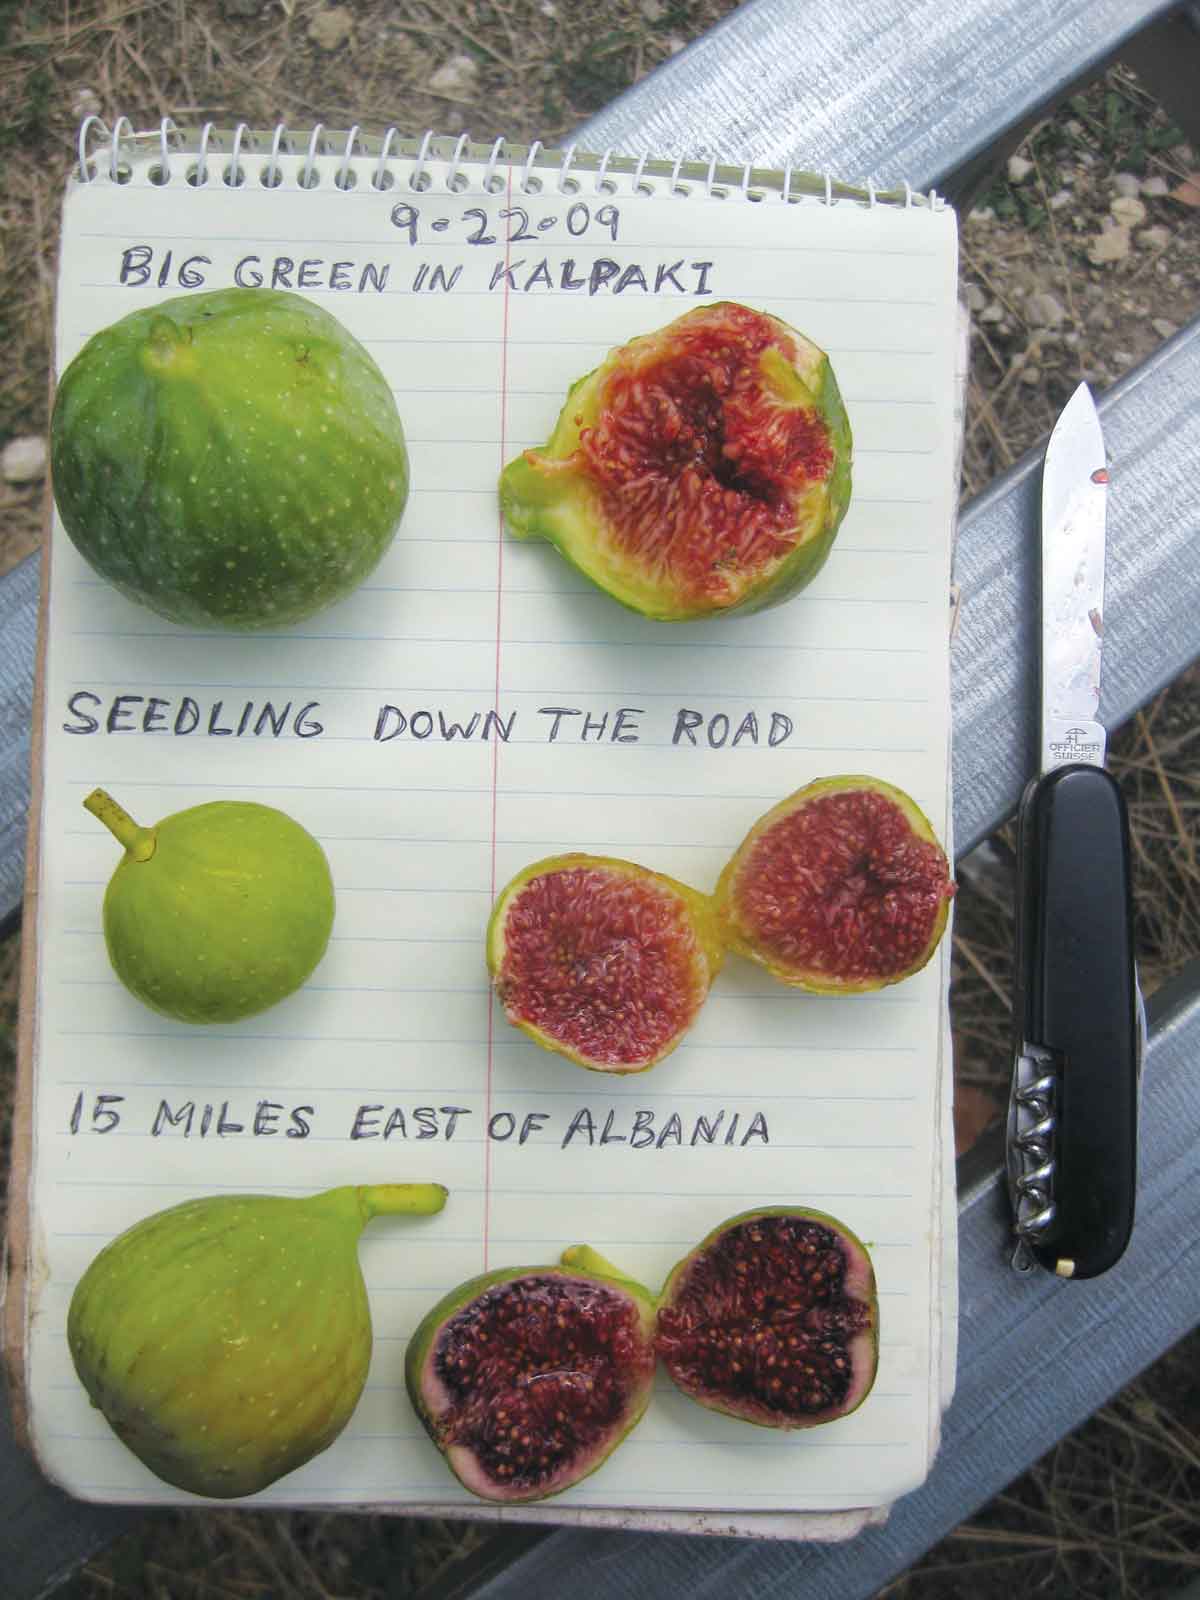 9-22-09
BIG GREEN IN KALPAKI
SEEDLING DOWN THE ROAD
OFFICIER
SUISSE
15 MILES EAST OF ALBANIA